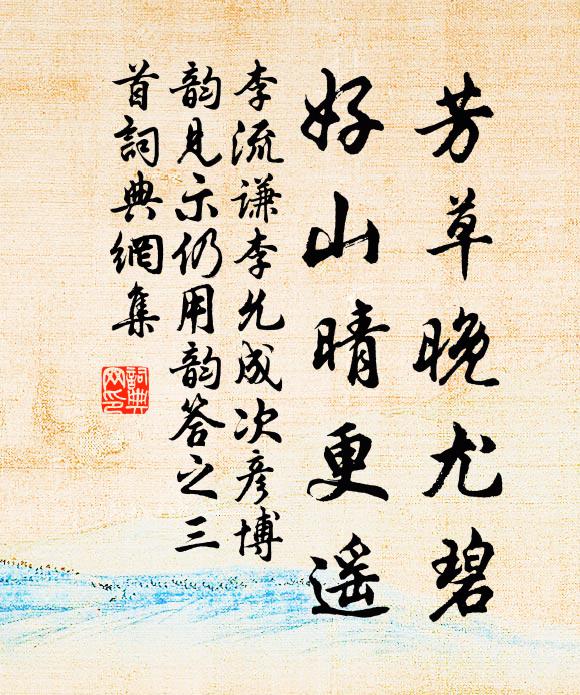 芳草晚尤碧
好山晴更遥
李流谦李允成次彦博
韵見示仍用韵答之三
首詞典網集
詞典
网印